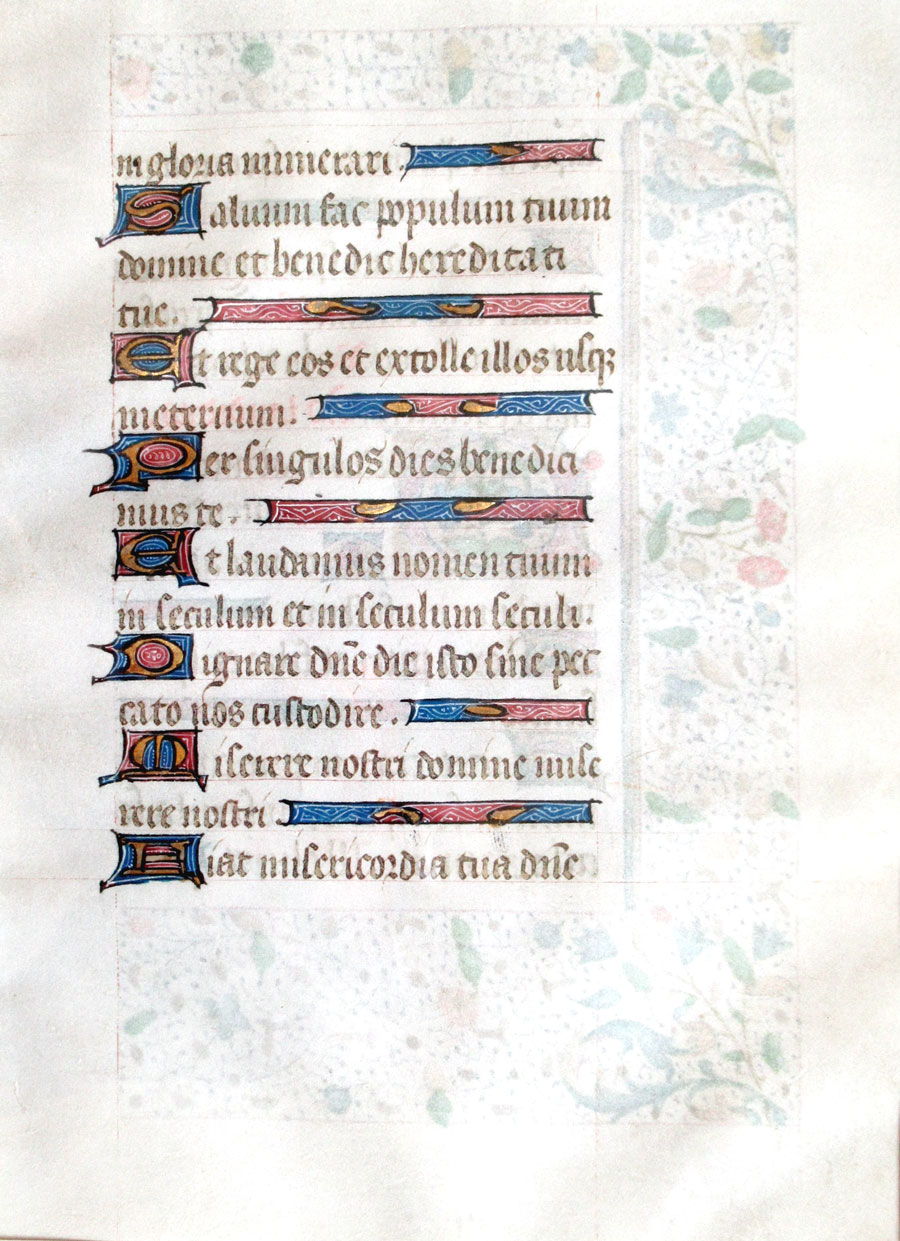 in gloria numerari.
Saluum fac populum tuum
domine et benedic heredita ti
tue.
Et rege eos et extolle illos usq;
in eternum.
Per singulos dies benedici
mus te.
Et laudamus nomen tuum
in seculum et in seculum seculi.
Dignare dñe die isto sine pec
cato nos custodire.
Miserere nostri domine mise
rere nostri
Fiat misericordia tua dñe